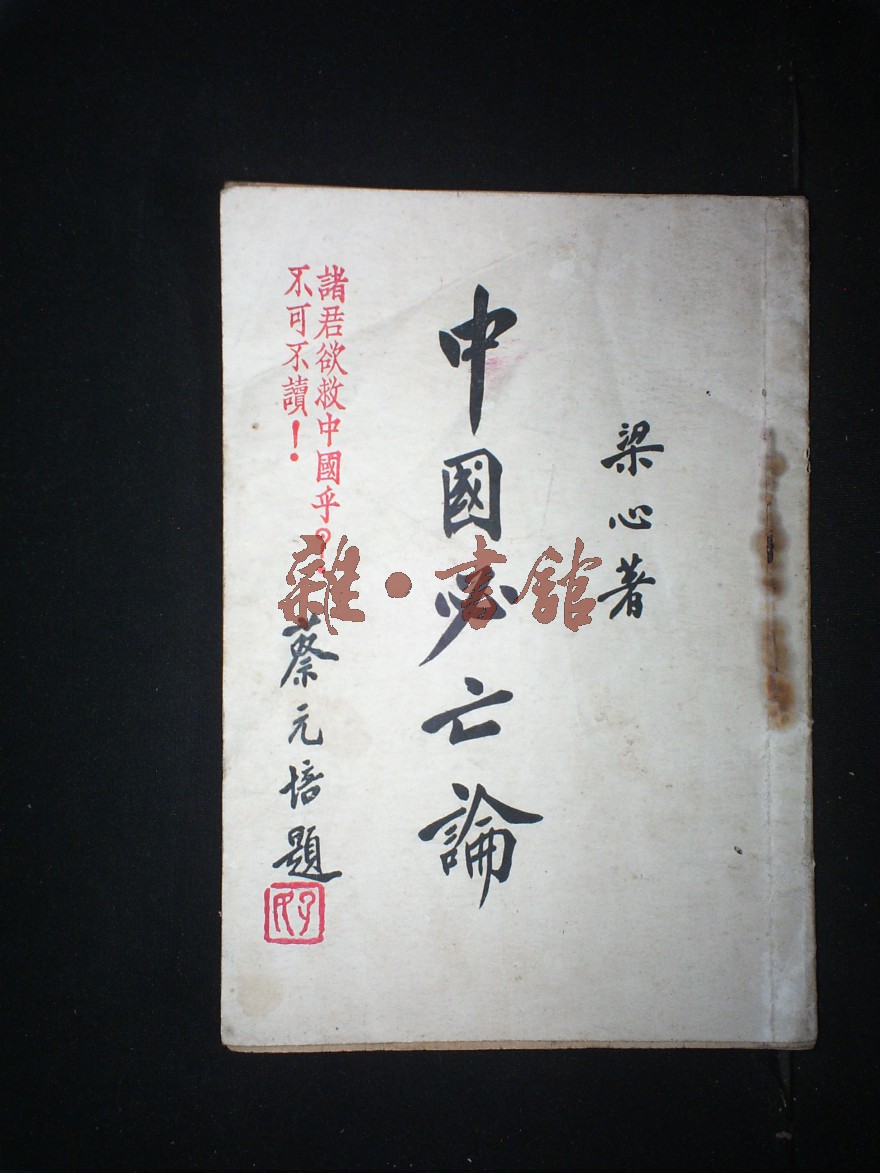 梁心著
中國必亡論
諸君欲救中國乎？
不可不讀！
蔡元培題
雜·書館